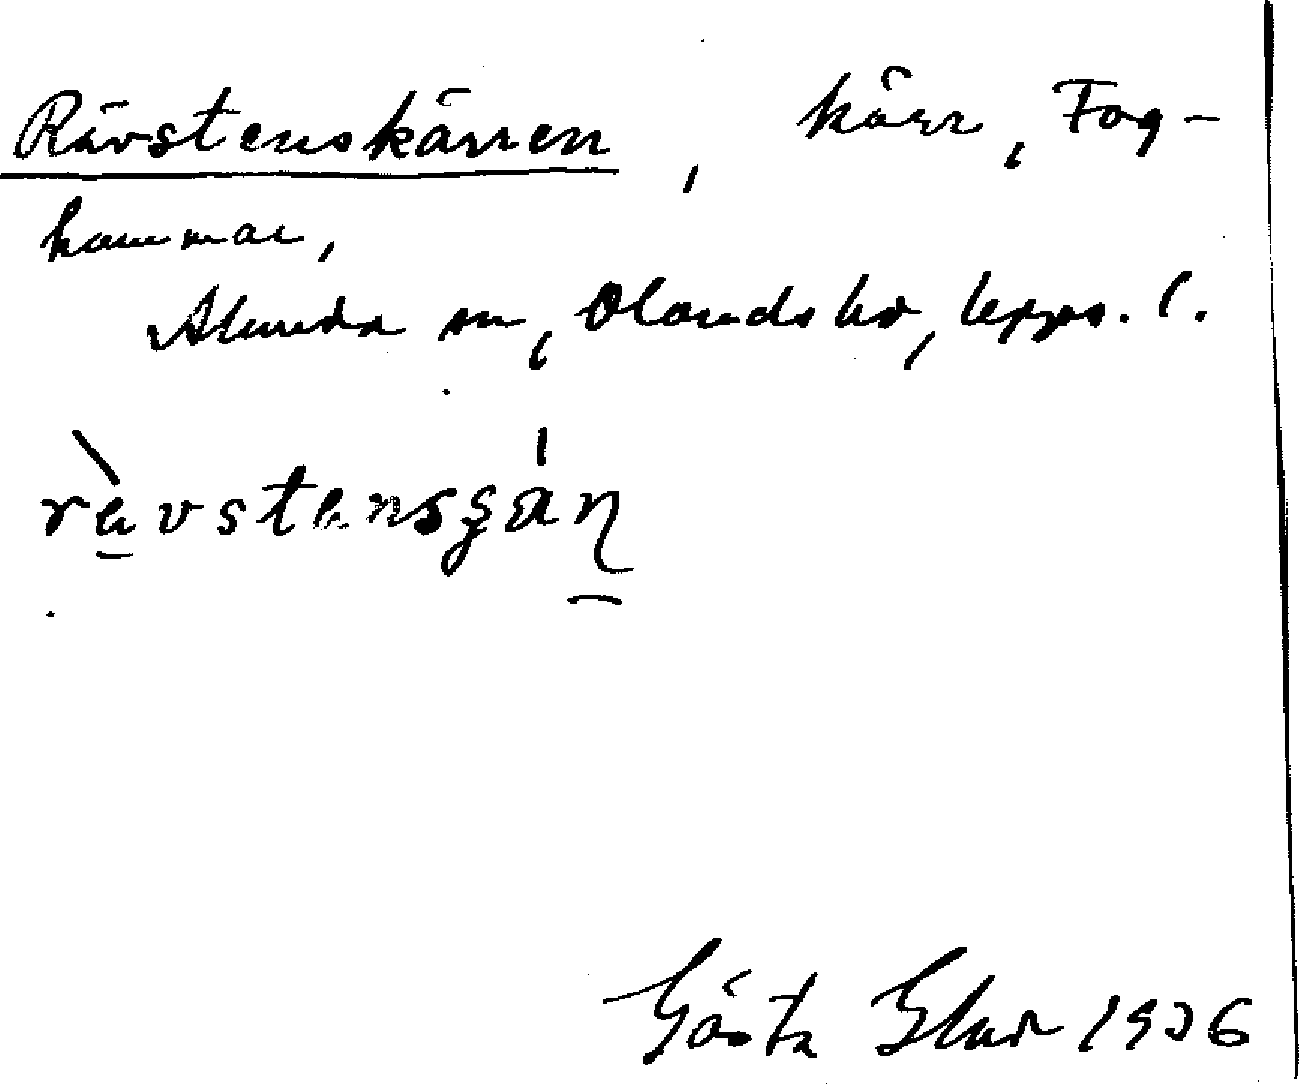 Rävstenskärren, kärr, Fog-
hammar,
Alunda sn, Olands hd, Upps. l.
rävstensʂän
Gösta Elar 1936